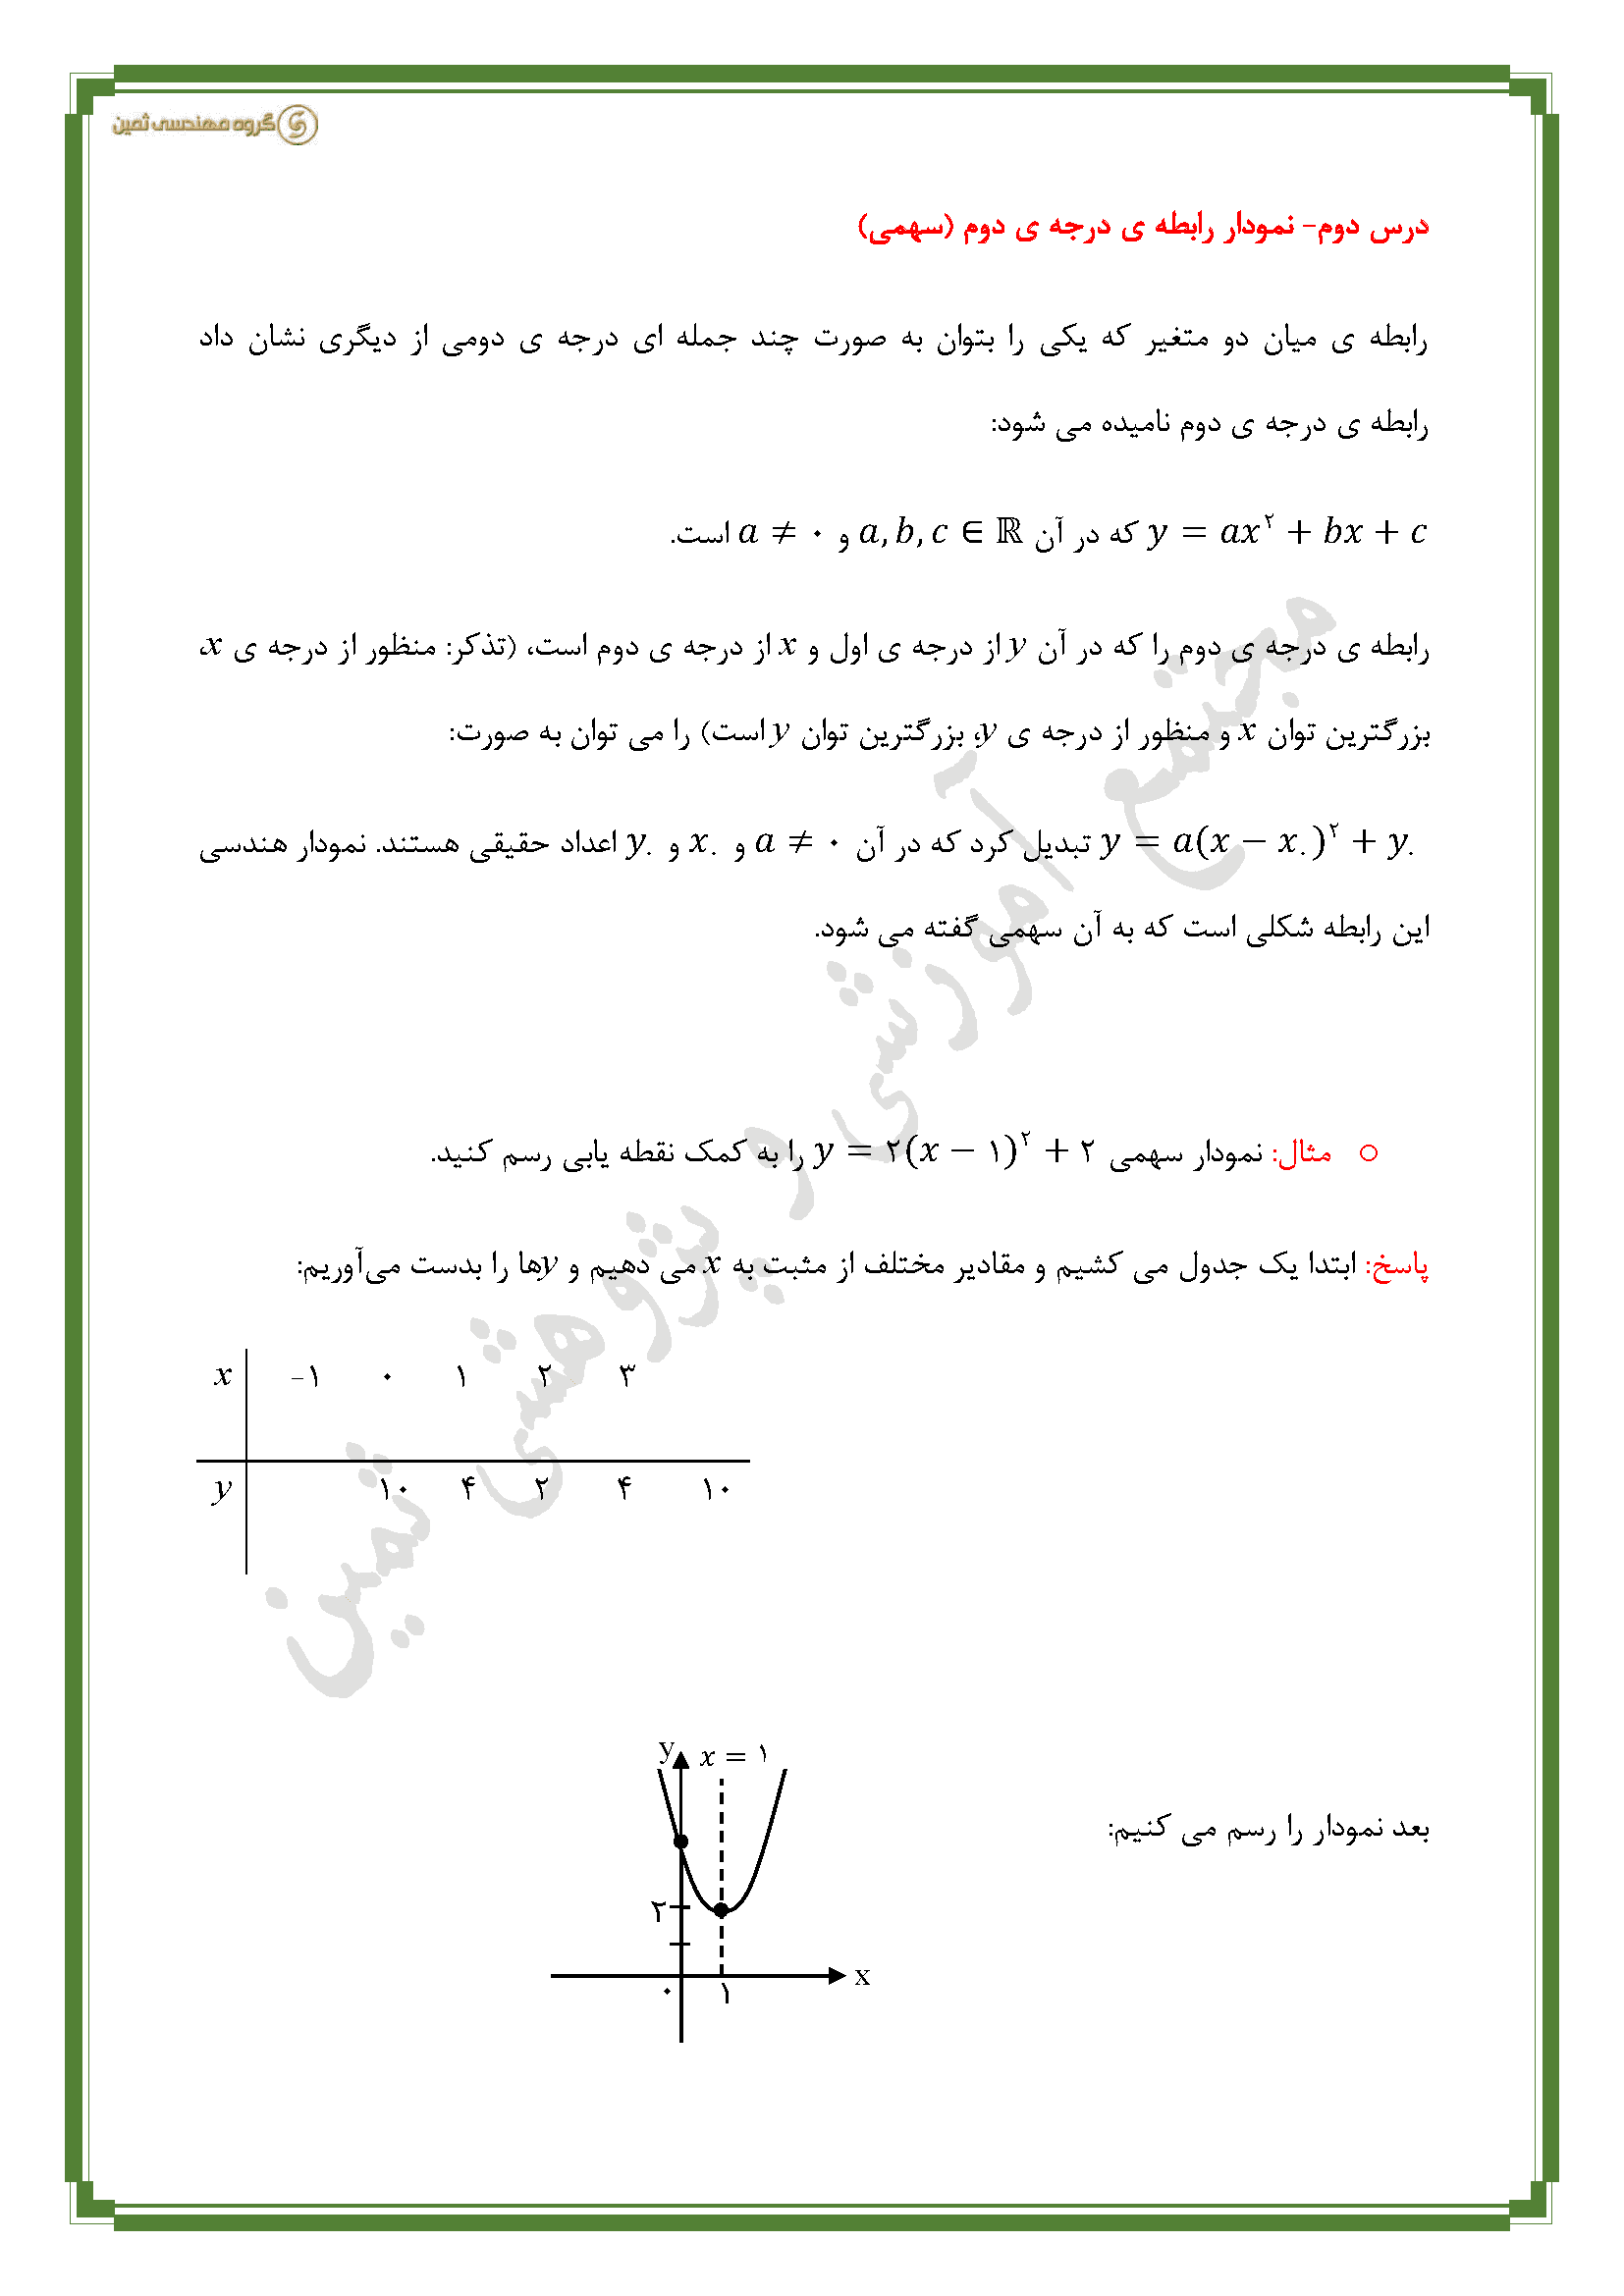 گروه مهندسی ثمین
درس دوم- نمودار رابطه ی درجه ی دوم (سهمی)
رابطه ی میان دو متغیر که یکی را بتوان به صورت چند جمله ای درجه ی دومی از دیگری نشان داد
رابطه ی درجه ی دوم نامیده می شود:
y = ax² + bx + c که در آن a, b, c ∈ ℝ و a ≠ ۰ است.
رابطه ی درجه ی دوم را که در آن y از درجه ی اول و x از درجه ی دوم است، (تذکر: منظور از درجه ی x،
بزرگترین توان x و منظور از درجه ی y، بزرگترین توان y است) را می توان به صورت:
y = a(x − x۰)² + y۰ تبدیل کرد که در آن a ≠ ۰ و x۰ و y۰ اعداد حقیقی هستند. نمودار هندسی
این رابطه شکلی است که به آن سهمی گفته می شود.
مجتمع آموزشی و پژوهشی ثمین
○ مثال: نمودار سهمی y = ۲(x − ۱)² + ۲ را به کمک نقطه یابی رسم کنید.
پاسخ: ابتدا یک جدول می کشیم و مقادیر مختلف از مثبت به x می دهیم و yها را بدست می‌آوریم:
x -۱ ۰ ۱ ۲ ۳
y ۱۰ ۴ ۲ ۴ ۱۰
بعد نمودار را رسم می کنیم:
y x = ۱
۲
x
۰ ۱